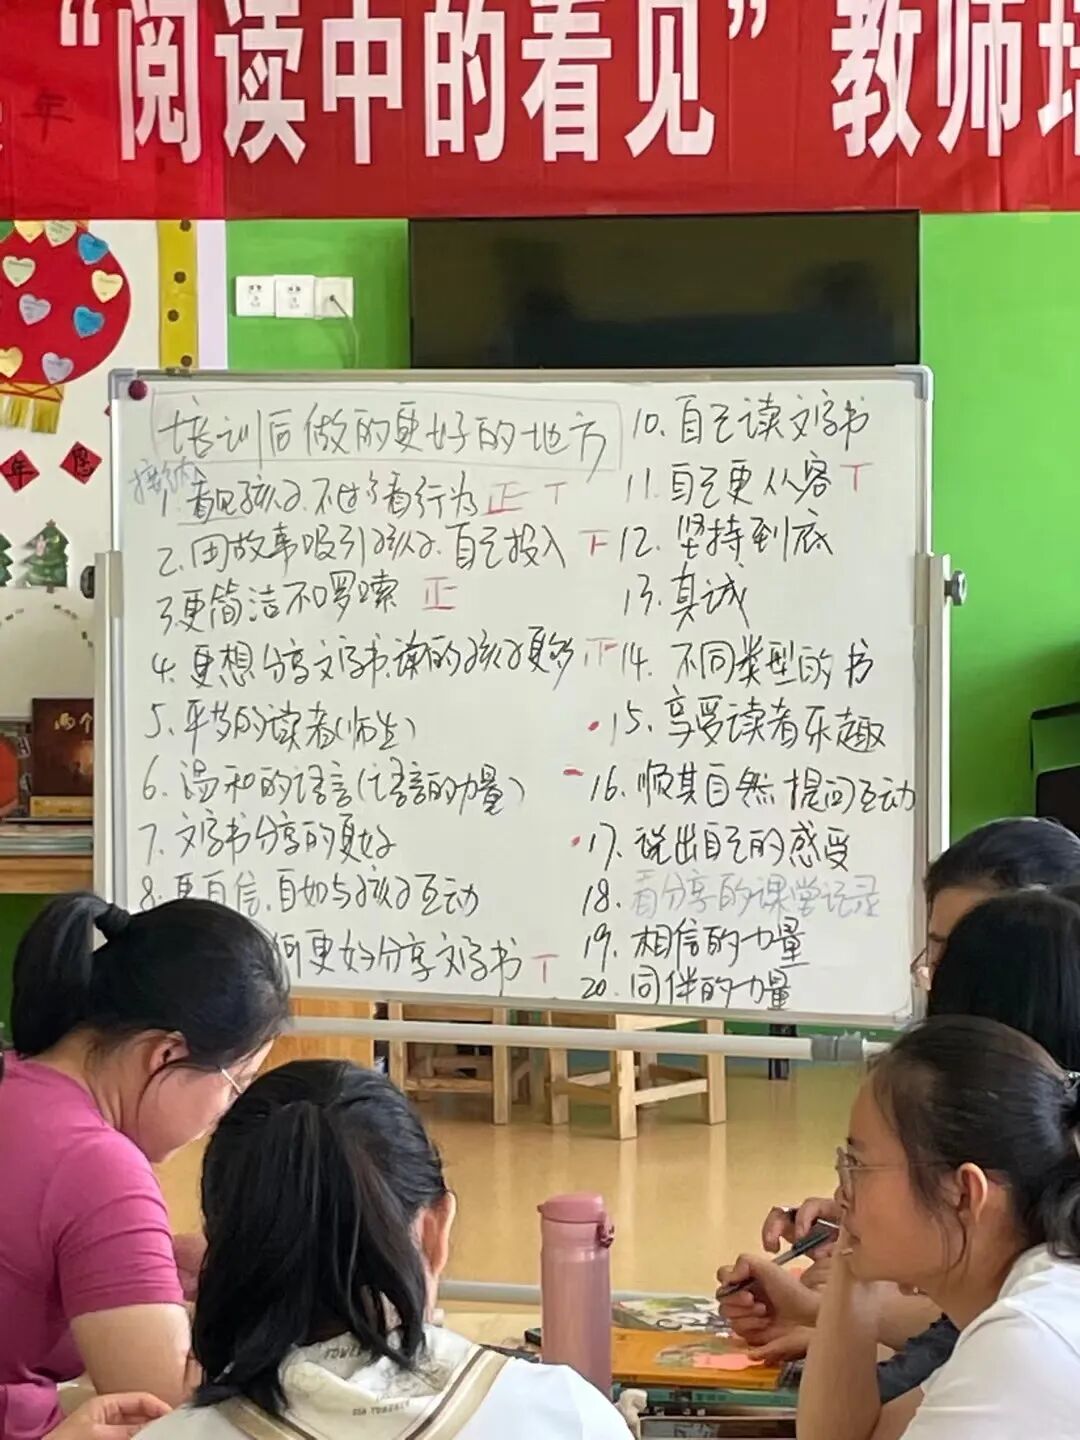 年 “阅读中的看见” 教师培
培训后做的更好的地方
接纳
1. 看见孩子、不过多看行为 正 丅
2. 用故事吸引孩子、自己投入 下
3. 更简洁不啰嗦 正
4. 更想分享文字书、读的孩子更多 正
5. 平等的读者(师生)
6. 温和的语言(语言的力量)
7. 文字书分享的更好
8. 更自信、自如与孩子互动
何更好分享文字书 丅
10. 自己读文字书
11. 自己更从容 丅
12. 坚持到底
13. 真诚
14. 不同类型的书
15. 享受读者乐趣
16. 顺其自然提问互动
17. 说出自己的感受
18. 看分享的课堂记录
19. 相信的力量
20. 同伴的力量
年
两个